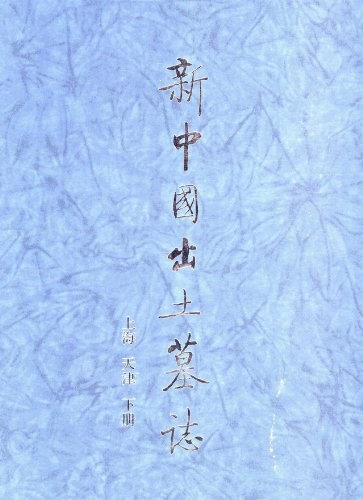 新中國出土墓誌
上海 天津 下册